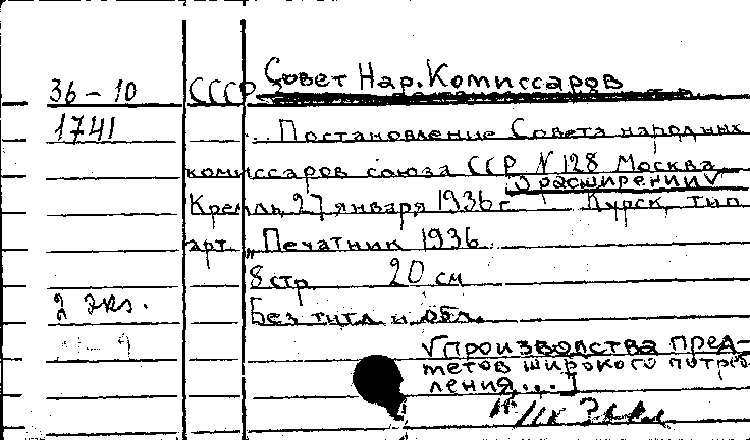 36-10 СССР Совет Нар. Комиссаров
1741 Постановление Совета народных
комиссаров союза ССР N 128 Москва
о расширении √
Кремль 27 января 1936 г. Курск, тип
арт. „Печатник 1936
8 стр. 20 см
2 экз.
Без тит л и обл.
√ производства пред-
метов широкого потреб
ления...]